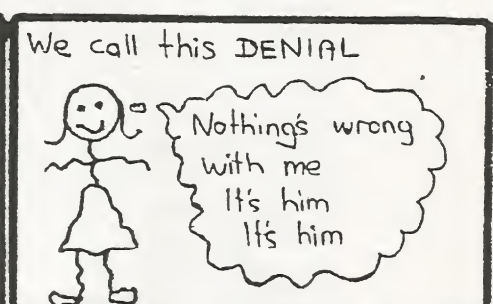 We call this DENIAL
Nothing's wrong
with me
It's him
It's him